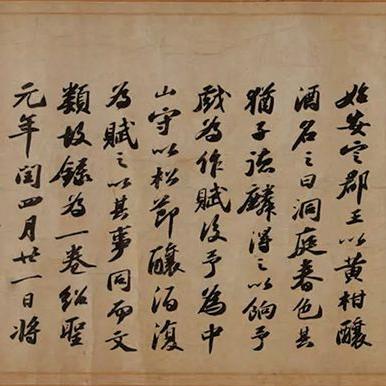 始安定郡王以黄柑釀
酒名之曰洞庭春色其
猶子德麟得之以餉予
戲為作賦後予為中
山守以松節釀酒復
為賦之以其事同而文
類故錄為一卷紹聖
元年閏四月廿一日將